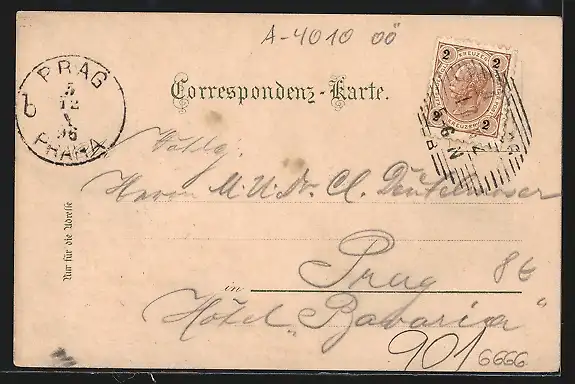 A-4010 OÖ
2 KREUZER 2
2 KREUZER 2
PRAG
5
12
X
96
PRAHA
Correspondenz-Karte.
Herrn M. U. Dr. Cl.
Nur für die Adresse
in Prag 86
Hôtel „Bavaria"
901 6666